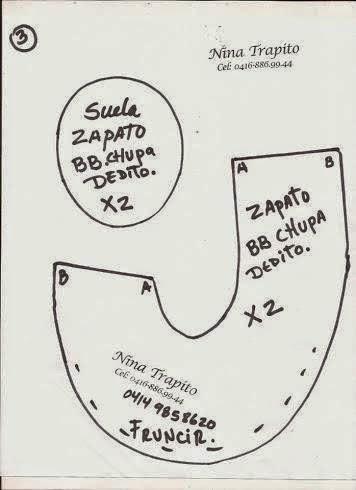 3
Nina Trapito
Cel: 0416-886.99.44
Suela
ZAPATO
BB.CHUPA
DEDITO.
X2
A B
ZAPATO
BB CHUPA
DEDITO.
X2
B A
Nina Trapito
Cel: 0416-886.99.44
0414 9858620
FRUNCIR.